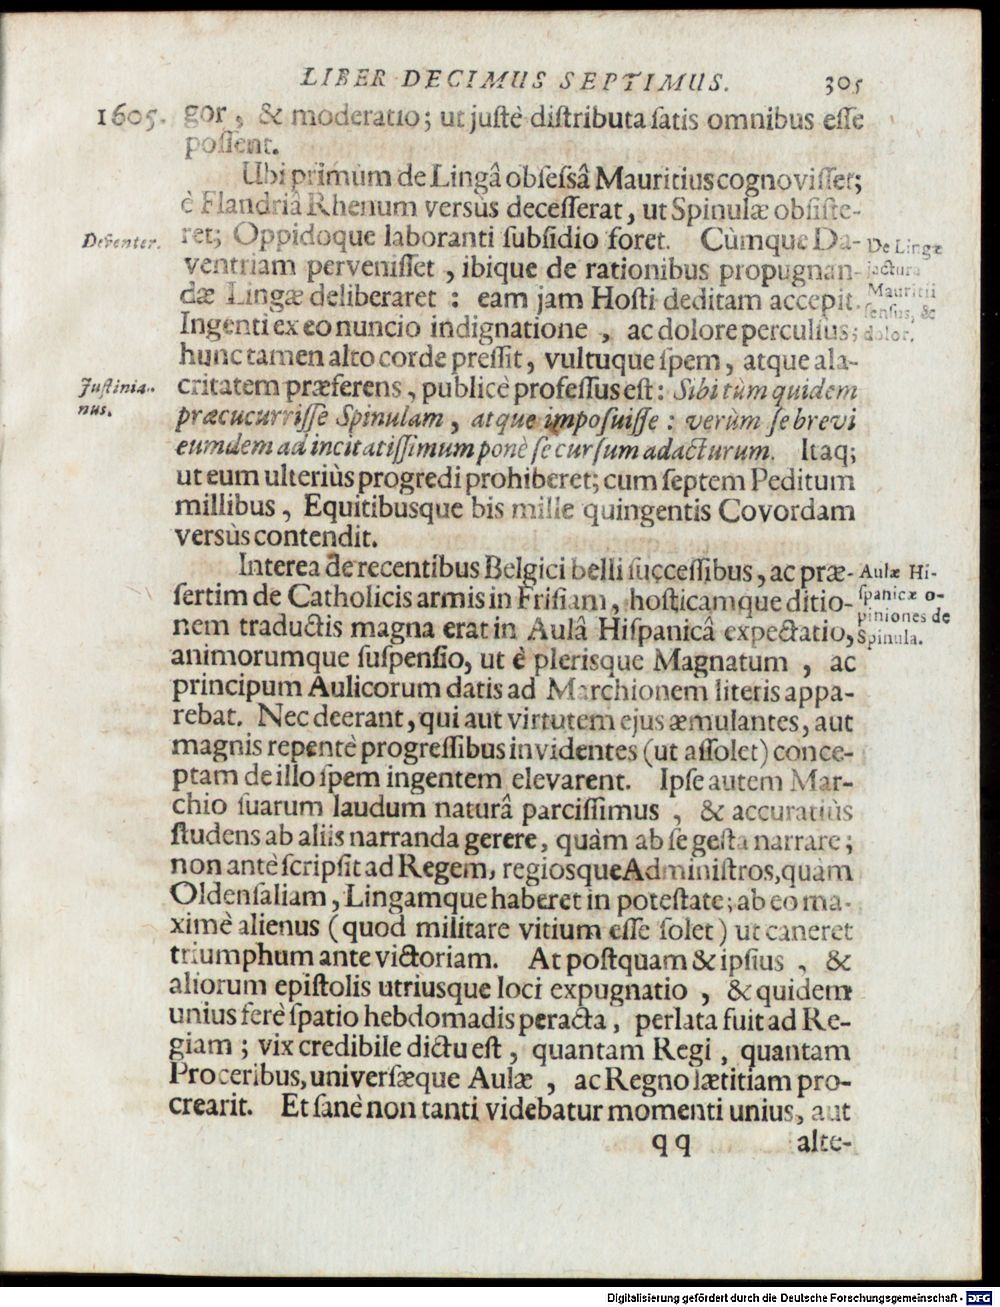 LIBER DECIMUS SEPTIMUS. 305
1605. gor, & moderatio; ut justè distributa satis omnibus esse
possent.
Ubi primùm de Lingâ obsessâ Mauritius cognovisset;
è Flandriâ Rhenum versùs decesserat, ut Spinulæ obsiste-
Deventer. ret; Oppidoque laboranti subsidio foret. Cùmque Da- De Lingæ
ventriam pervenisset, ibique de rationibus propugnan- jactura
dæ Lingæ deliberaret : eam jam Hosti deditam accepit. Mauritii
sensus, &
Ingenti ex eo nuncio indignatione, ac dolore perculsus; dolor.
hunc tamen alto corde pressit, vultuque spem, atque ala-
Justinia- critatem præferens, publicè professus est: Sibi tùm quidem
nus. præcucurrisse Spinulam, atque imposuisse : verùm se brevi
eumdem ad incitatissimum ponè se cursum adacturum. Itaq;
ut eum ulteriùs progredi prohiberet; cum septem Peditum
millibus, Equitibusque bis mille quingentis Covordam
versùs contendit.
Interea de recentibus Belgici belli successibus, ac præ- Aulæ Hi-
sertim de Catholicis armis in Frisiam, hosticamque ditio- spanicæ o-
piniones de
nem traductis magna erat in Aulâ Hispanicâ expectatio, Spinula.
animorumque suspensio, ut è plerisque Magnatum, ac
principum Aulicorum datis ad Marchionem literis appa-
rebat. Nec deerant, qui aut virtutem ejus æmulantes, aut
magnis repentè progressibus invidentes (ut assolet) conce-
ptam de illo spem ingentem elevarent. Ipse autem Mar-
chio suarum laudum naturâ parcissimus, & accuratiùs
studens ab aliis narranda gerere, quàm ab se gesta narrare;
non antè scripsit ad Regem, regiosque Administros, quàm
Oldensaliam, Lingamque haberet in potestate; ab eo ma-
ximè alienus (quod militare vitium esse solet) ut caneret
triumphum ante victoriam. At postquam & ipsius, &
aliorum epistolis utriusque loci expugnatio, & quidem
unius ferè spatio hebdomadis peracta, perlata fuit ad Re-
giam; vix credibile dictu est, quantam Regi, quantam
Proceribus, universæque Aulæ, ac Regno lætitiam pro-
crearit. Et sanè non tanti videbatur momenti unius, aut
qq alte-
Digitalisierung gefördert durch die Deutsche Forschungsgemeinschaft - DFG